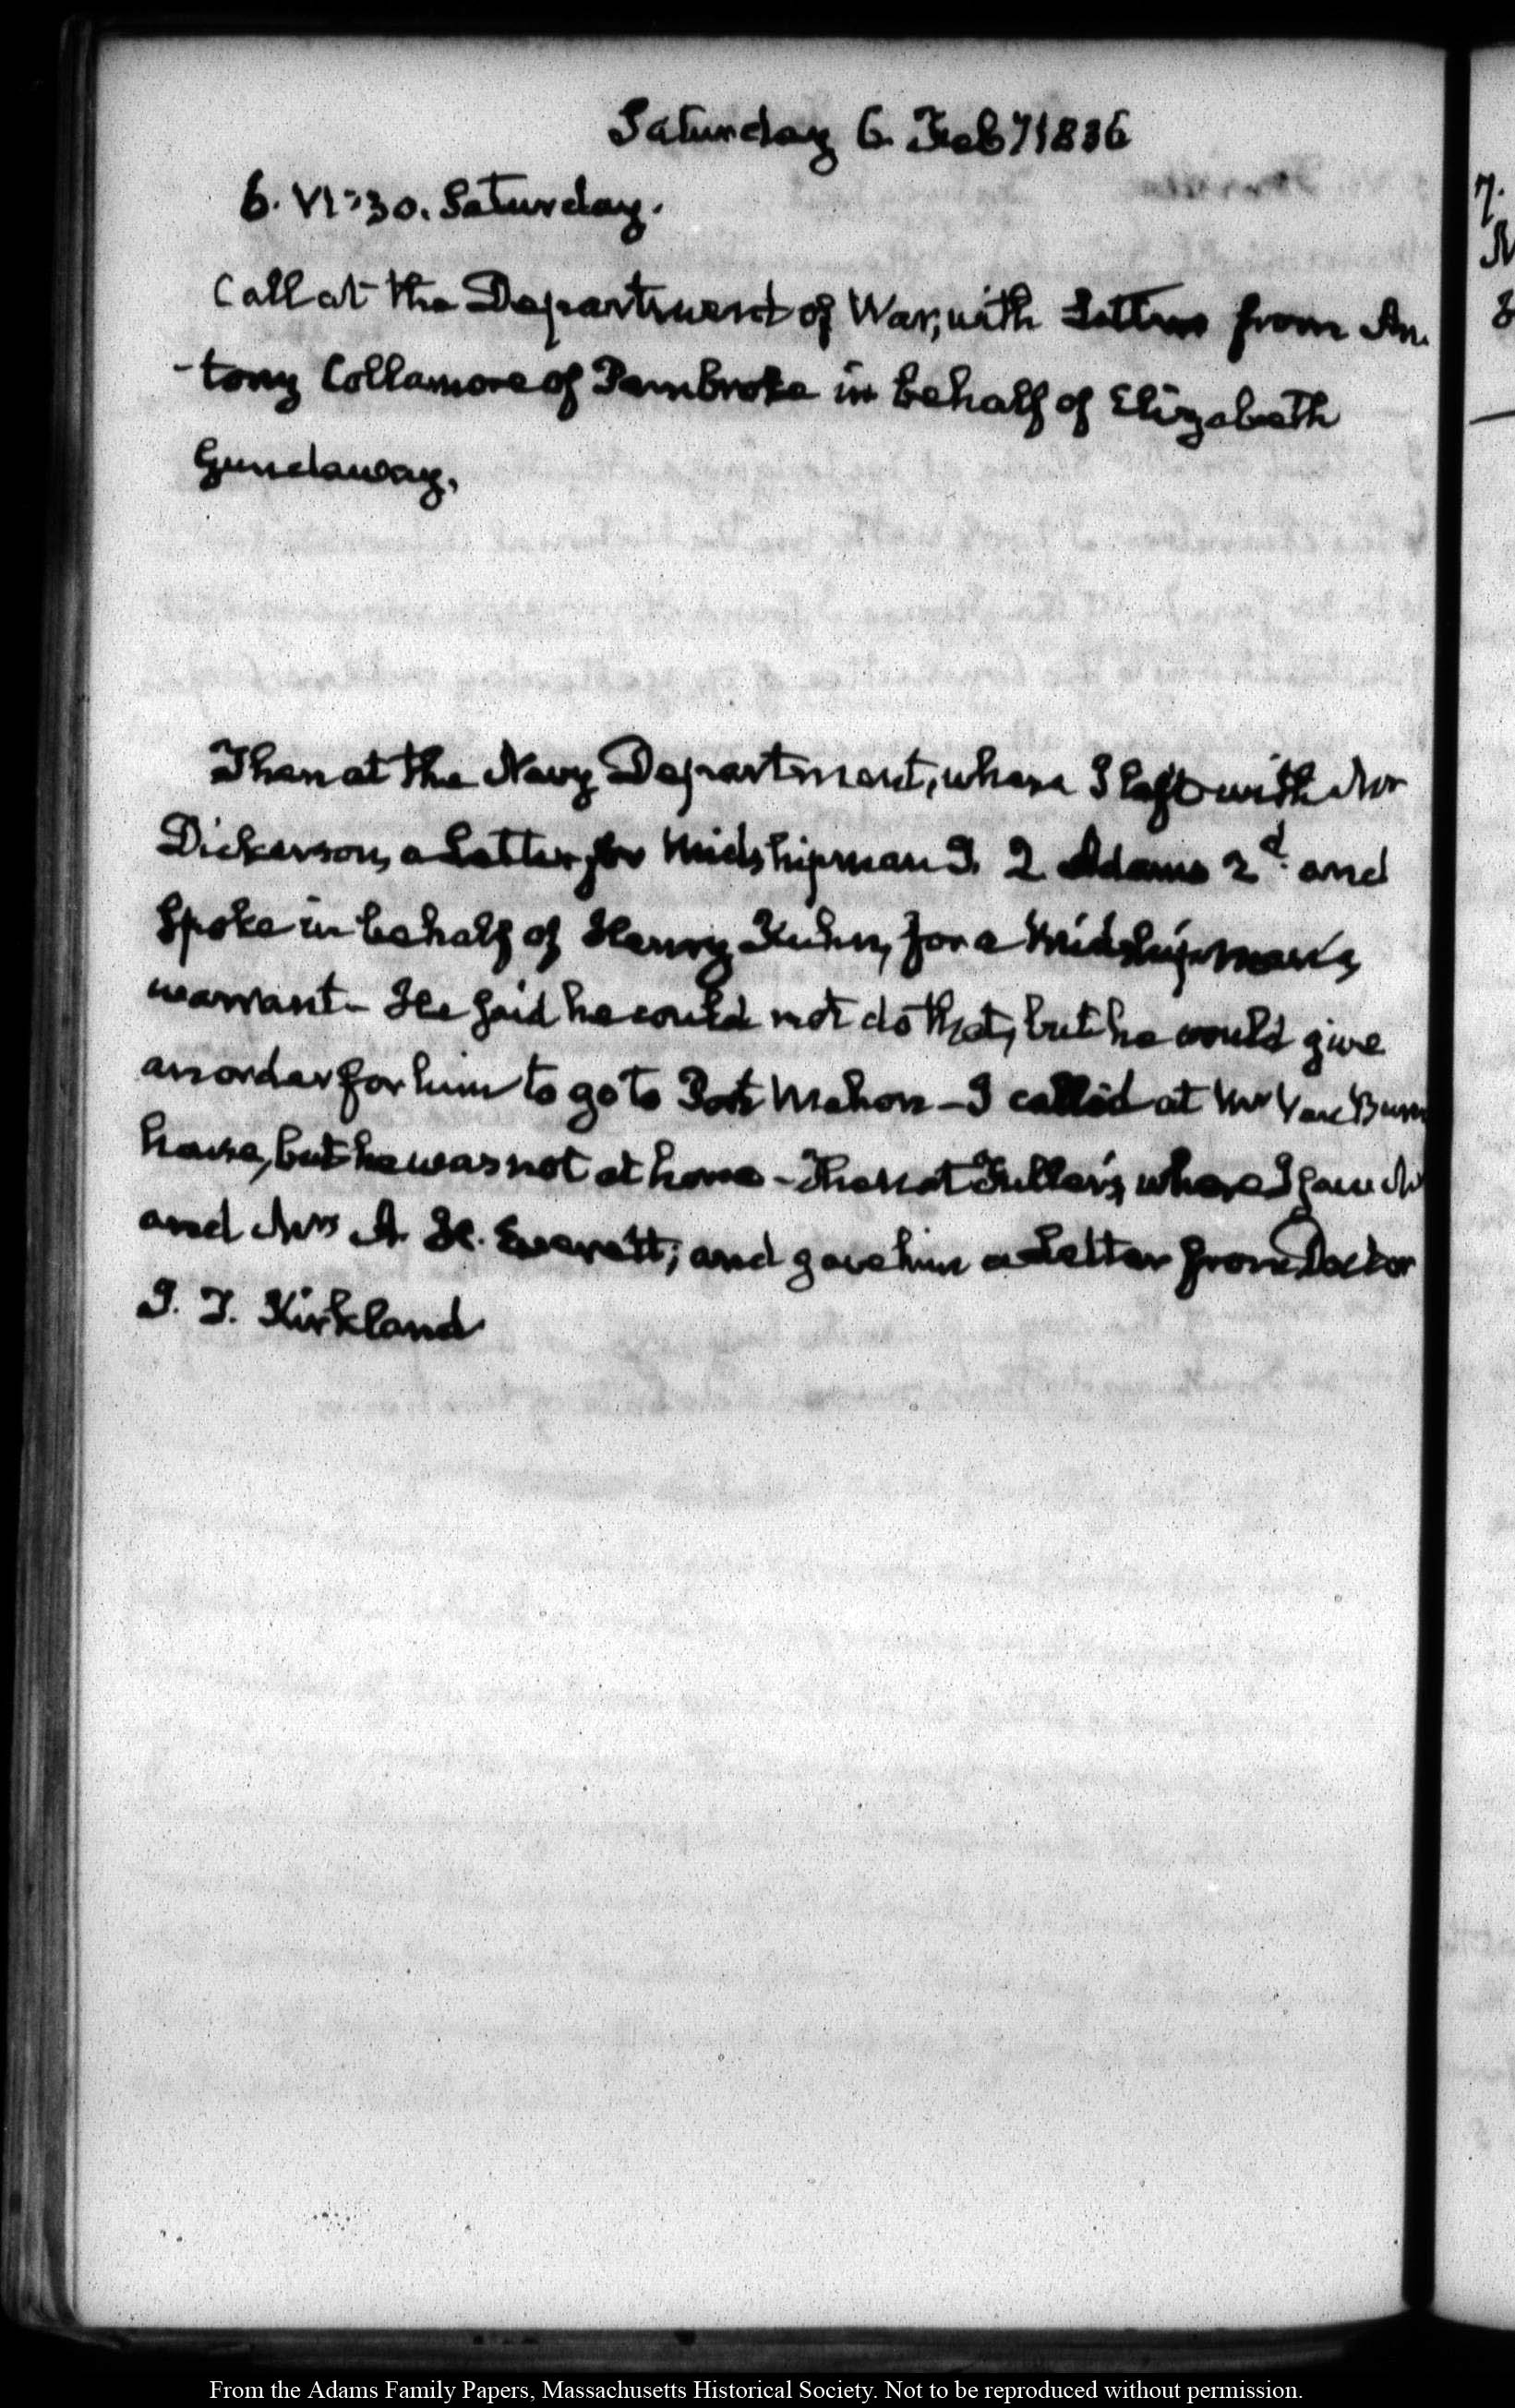 Saturday 6. Feby 1836
6. VI:30. Saturday.
Call at the Department of War, with Letters from An-
-tony Collamore of Pembroke in behalf of Elizabeth
Gundaway.
Then at the Navy Department, where I left with Mr
Dickerson, a Letter for Midshipman J. Q. Adams 2d. and
spoke in behalf of Henry Kuhn, for a Midshipman's
warrant - He said he could not do that, but he would give
an order for him to go to Port Mahon - I called at Mr Van Buren
house, but he was not at home - Then at Fuller's, where I saw Mr
and Mrs A. H. Everett; and gave him a Letter from Doctor
J. T. Kirkland
7.
From the Adams Family Papers, Massachusetts Historical Society. Not to be reproduced without permission.